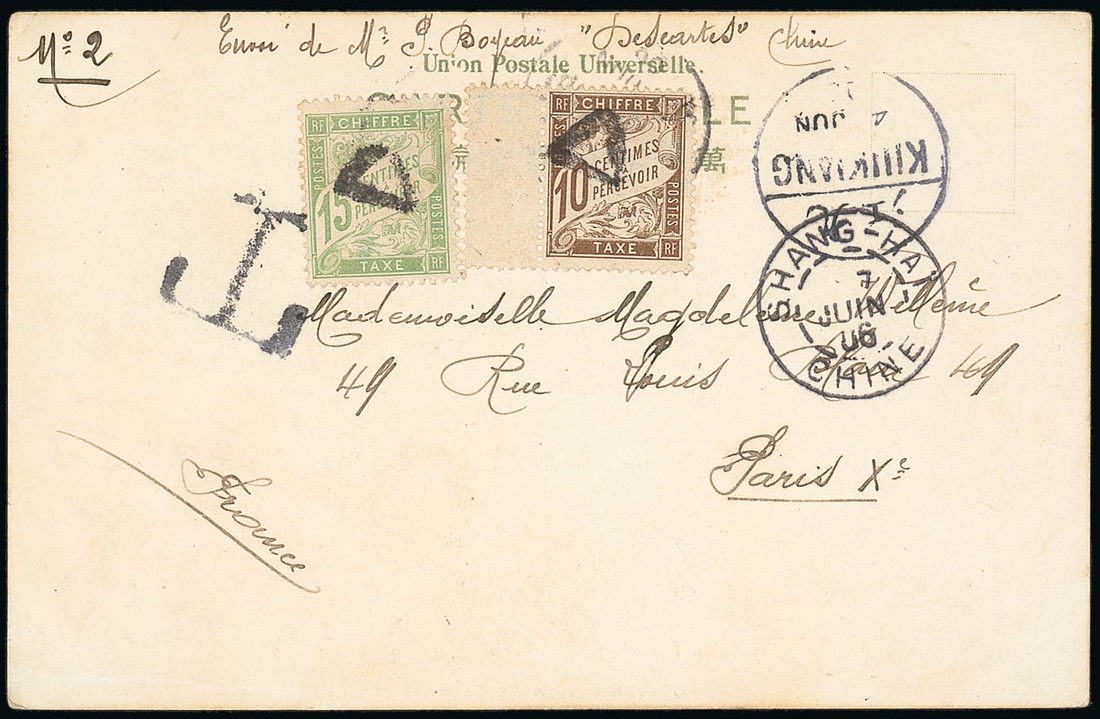 Nº 2
Envoi de Mr. P. Boyeau "Descartes" Chine
Union Postale Universelle.
萬
RF CHIFFRE
POSTES
15 CENTIMES
A PERCEVOIR
TAXE RF
RF CHIFFRE
POSTES
10 CENTIMES
A PERCEVOIR
TAXE RF
T
4 JUN
KIUKIANG
SHANG-HAI
7
JUIN
06
CHINE
Mademoiselle Magdeleine
49 Rue Louis Blanc 49
Paris Xe
France